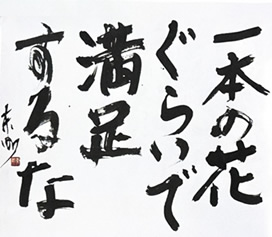 一本の花
ぐらいで
満足
するな